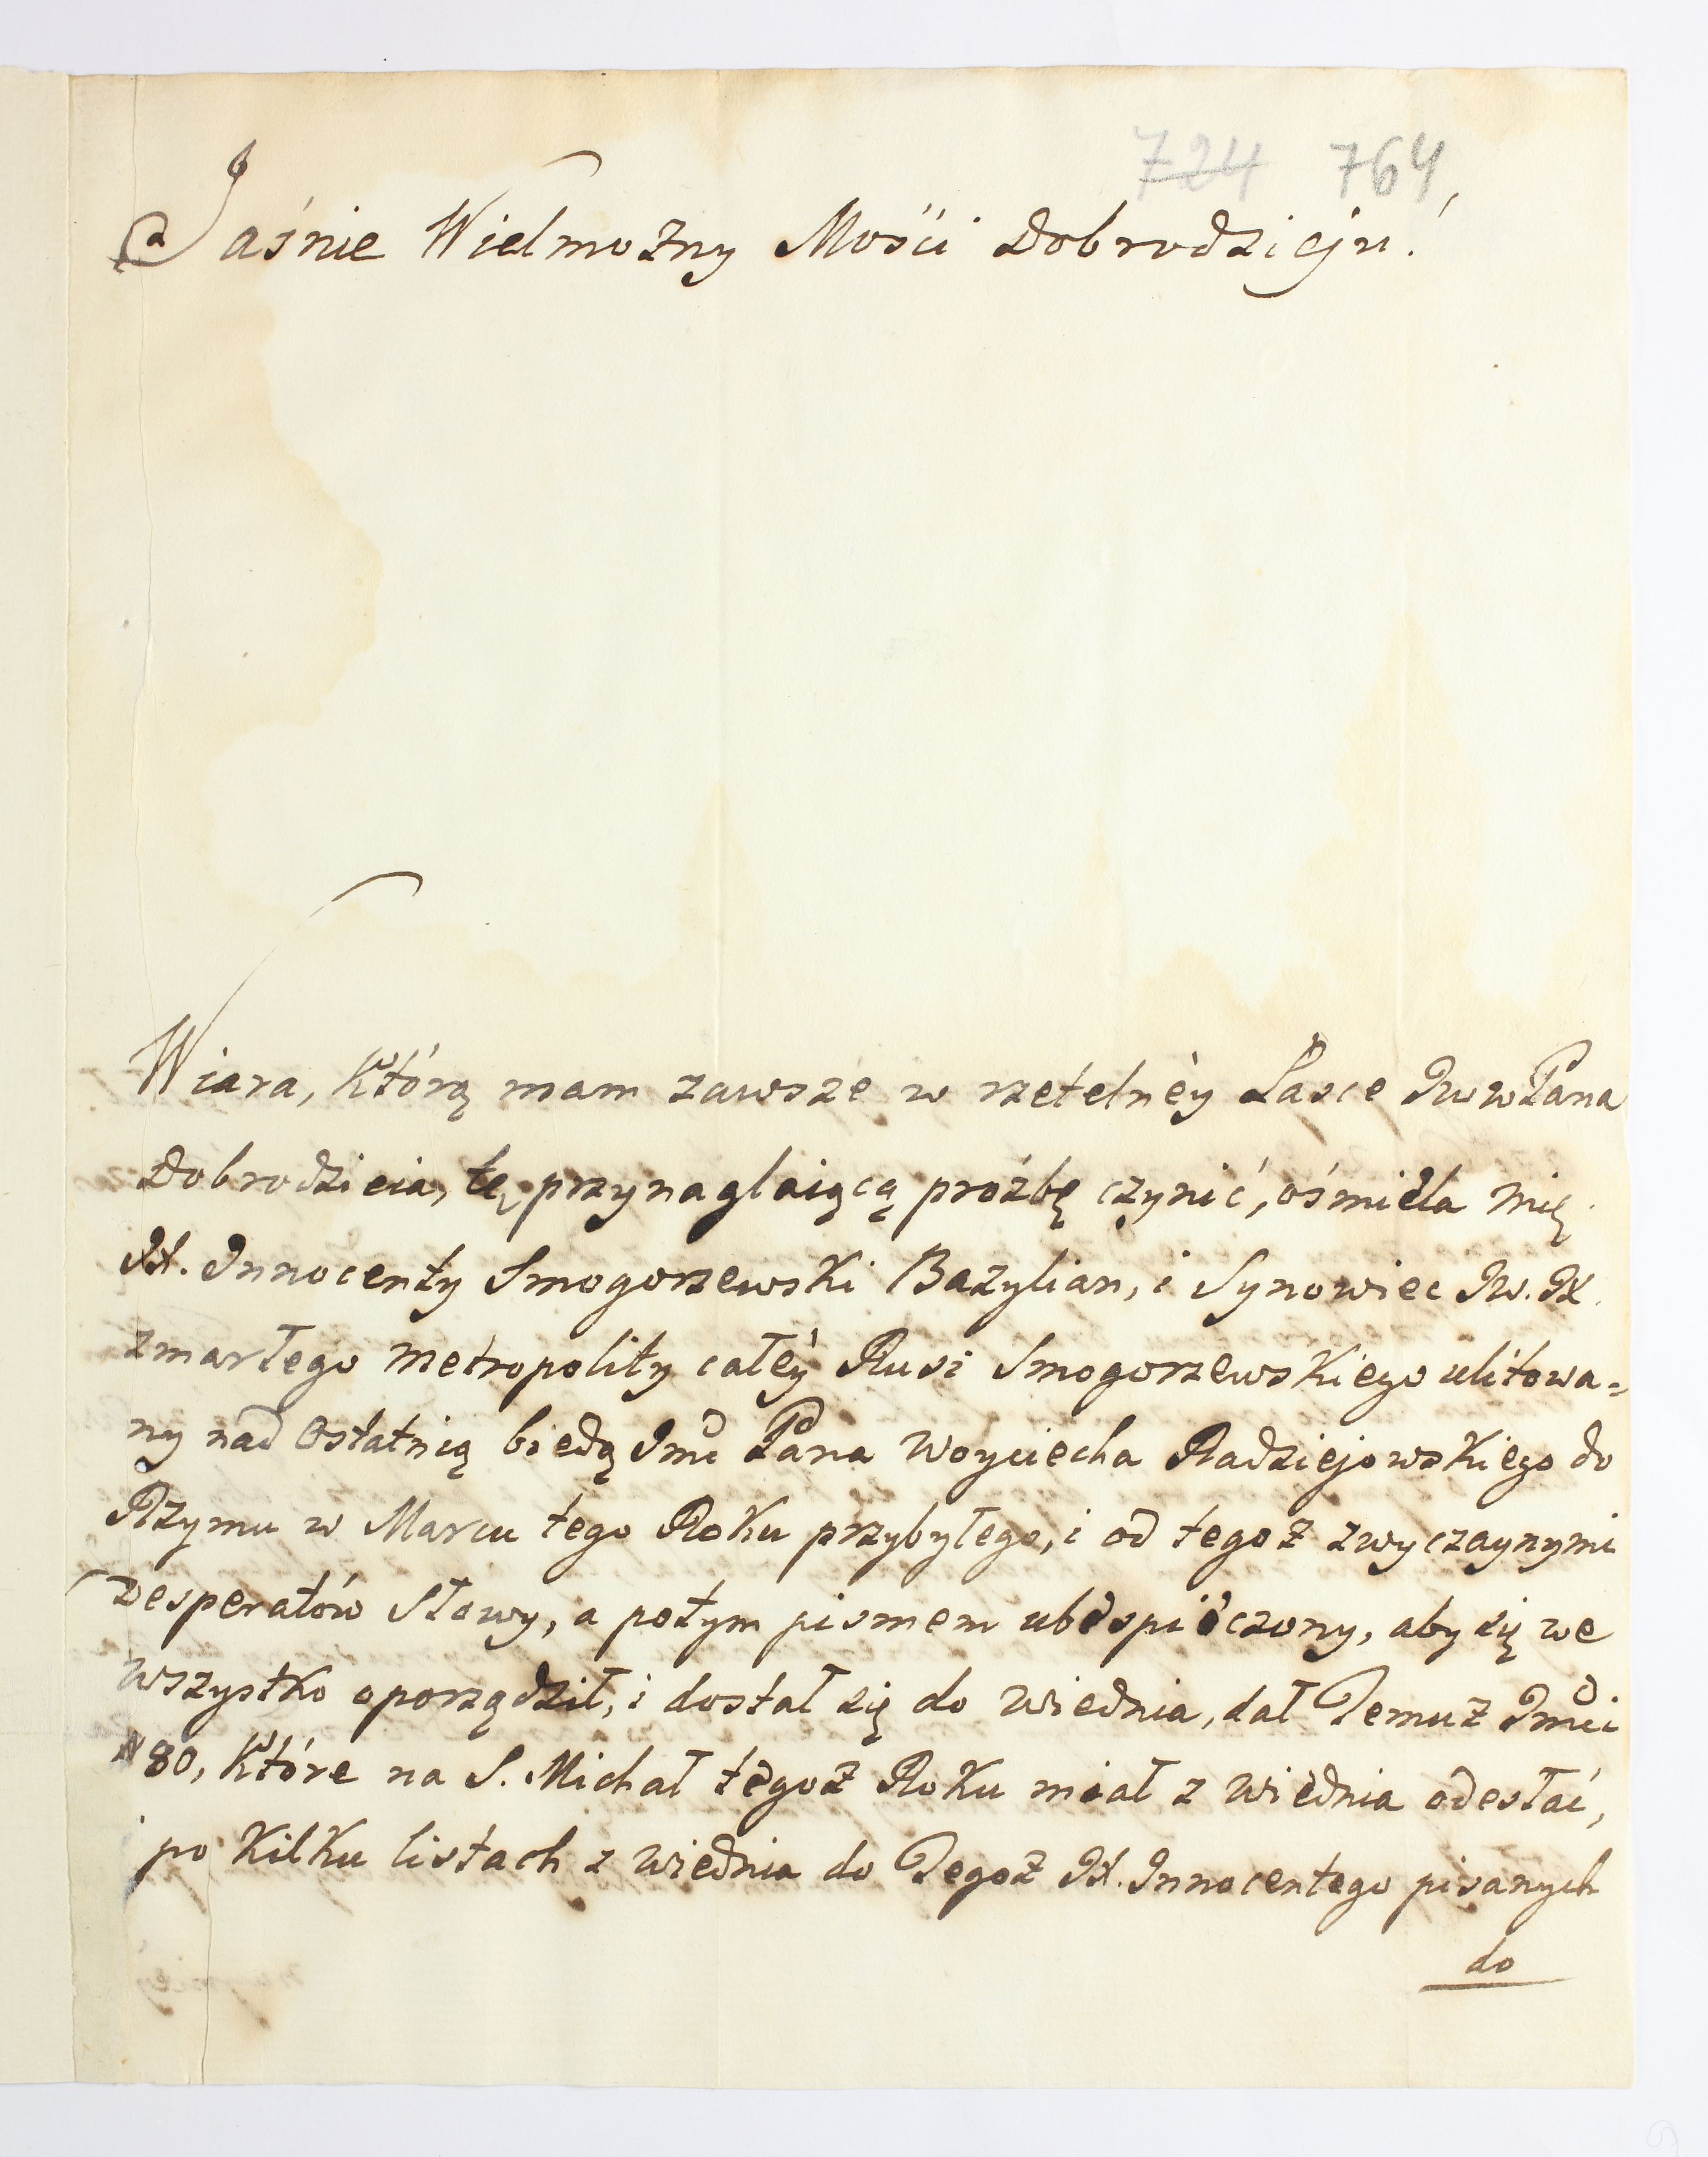 724 764
Jaśnie Wielmożny Mości Dobrodzieju!
Wiara, którą mam zawsze w rzetelnéy Łasce JWWPana
Dobrodzieia, tę przynaglaiącą prożbę czynić, ośmiela mię
JX. Innocenty Smogorzewski Bazylian, i Synowiec JW. JX.
zmarłego Metropolity całéy Rusi Smogorzewskiego ulitowa=
ny nad Ostatnią biedą Jmci Pana Woyciecha Radziejowskiego do
Rzymu w Marcu tego Roku przybyłego, i od tegoż zwyczaynymi
Desperatów Słowy, a potym pismem ubespieczony, aby się we
wszystko oporządził, i dostał się do Wiednia, dał Temuż Jmci
80, które na S. Michał tegoż Roku miał z Wiednia odesłać,
po kilku listach z Wiednia do Tegoż JX. Innocentego pisanych
do